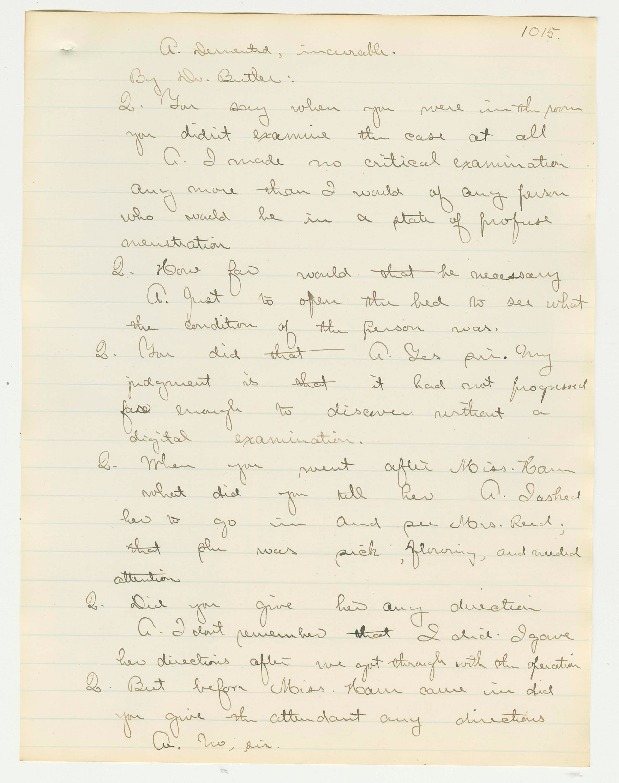 1015.
A. Demented, incurable.
By Dr. Butler:
Q. You say when you were in the room
you didn't examine the case at all
A. I made no critical examination
any more than I would of any person
who would be in a state of profuse
menstration
Q. How far would that be necessary
A. Just to open the bed to see what
the condition of the person was.
Q. You did that A. Yes sir. My
judgment is that it had not progressed
far enough to discover without a
digital examination.
Q. When you went after Miss. Ham
what did you tell her A. I asked
her to go in and see Mrs. Reed;
that she was sick, flowing, and needed
attention
Q. Did you give her any direction
A. I don't remember that I did. I gave
her directions after we got through with the operation
Q. But before Miss. Ham came in did
you give the attendant any directions
A. No, sir.